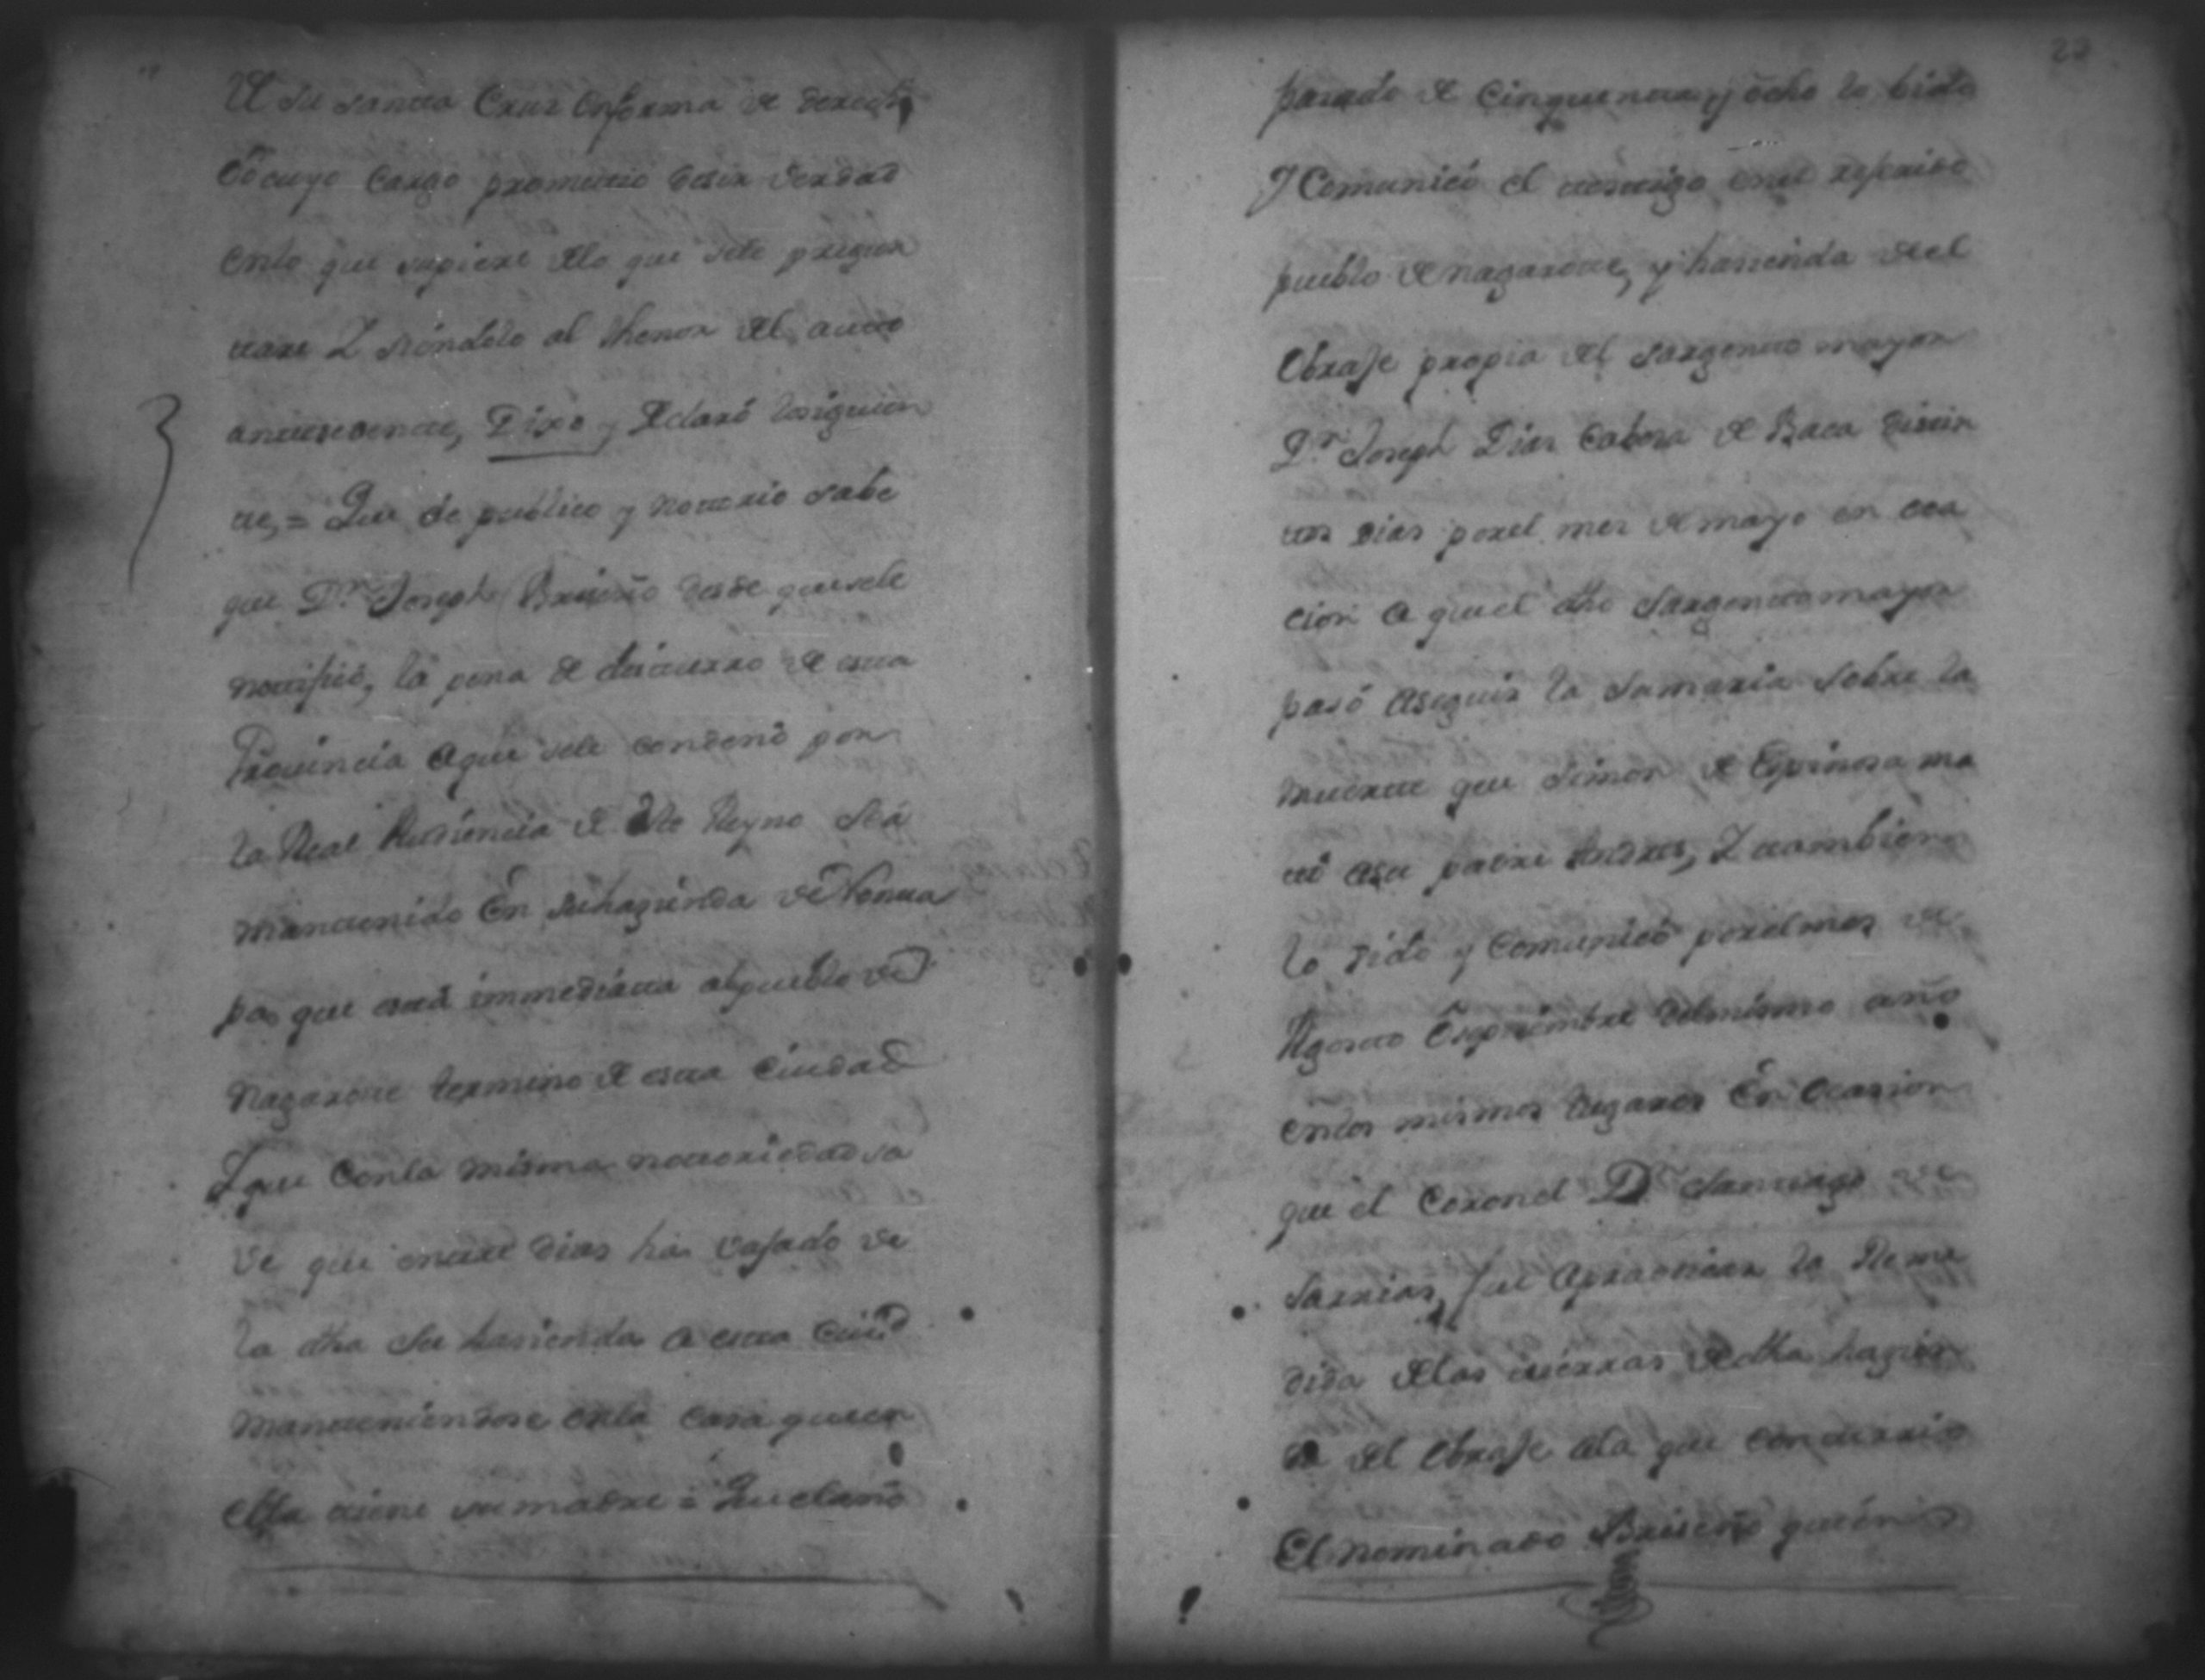 de su santa Cruz enforma de derecho
Vº cuyo cargo prometio desir verdad
enlo que supiere dlo que sele pregun
tare Y siéndolo al thenor del auto
antesedente, Dixo y declaró losiguien
te, = Que de publico y notorio sabe
que Dn Joseph Briseño desde quesele
notifico, la pena de destierro de esta
Provincia aque sele condenó por
la Real Audiencia de este Reyno se á
mantenido En suhazienda de
pa, que está immediata alpueblo de
Nagarote termino de esta Ciudad
Y que Conla misma notoriedad sa
ve que entre dias ha vajado de
la dha su hasienda a esta Ciud
manteniendose enla casa queen
ella tiene su madre = Que el año
22
pasado de cinquenta y ocho lo bido
Y Comunicó el testigo enel referido
pueblo de nagarote, y hasienda del
Obraje propia del sargento mayor
Dn Joseph Dias Cabesa de Baca disin
tos dias porel mes de mayo en oca
cion a quel dho sargentomayor
pasó aseguir la sumaria sobre la
muerte que Simon de Espinosa ma
tó asu padre Andres, Y tambien
lo vido y Comunicó porelmes de
Agosto Eseptiembre delmismo año
enlos mismos lugares En Ocasion
que el Coronel Dn Santiago de
fue apracticar la Reme
dida delas tierras dedha hazien
da del Obraje ala que concurrio
El nominado Briseño quien